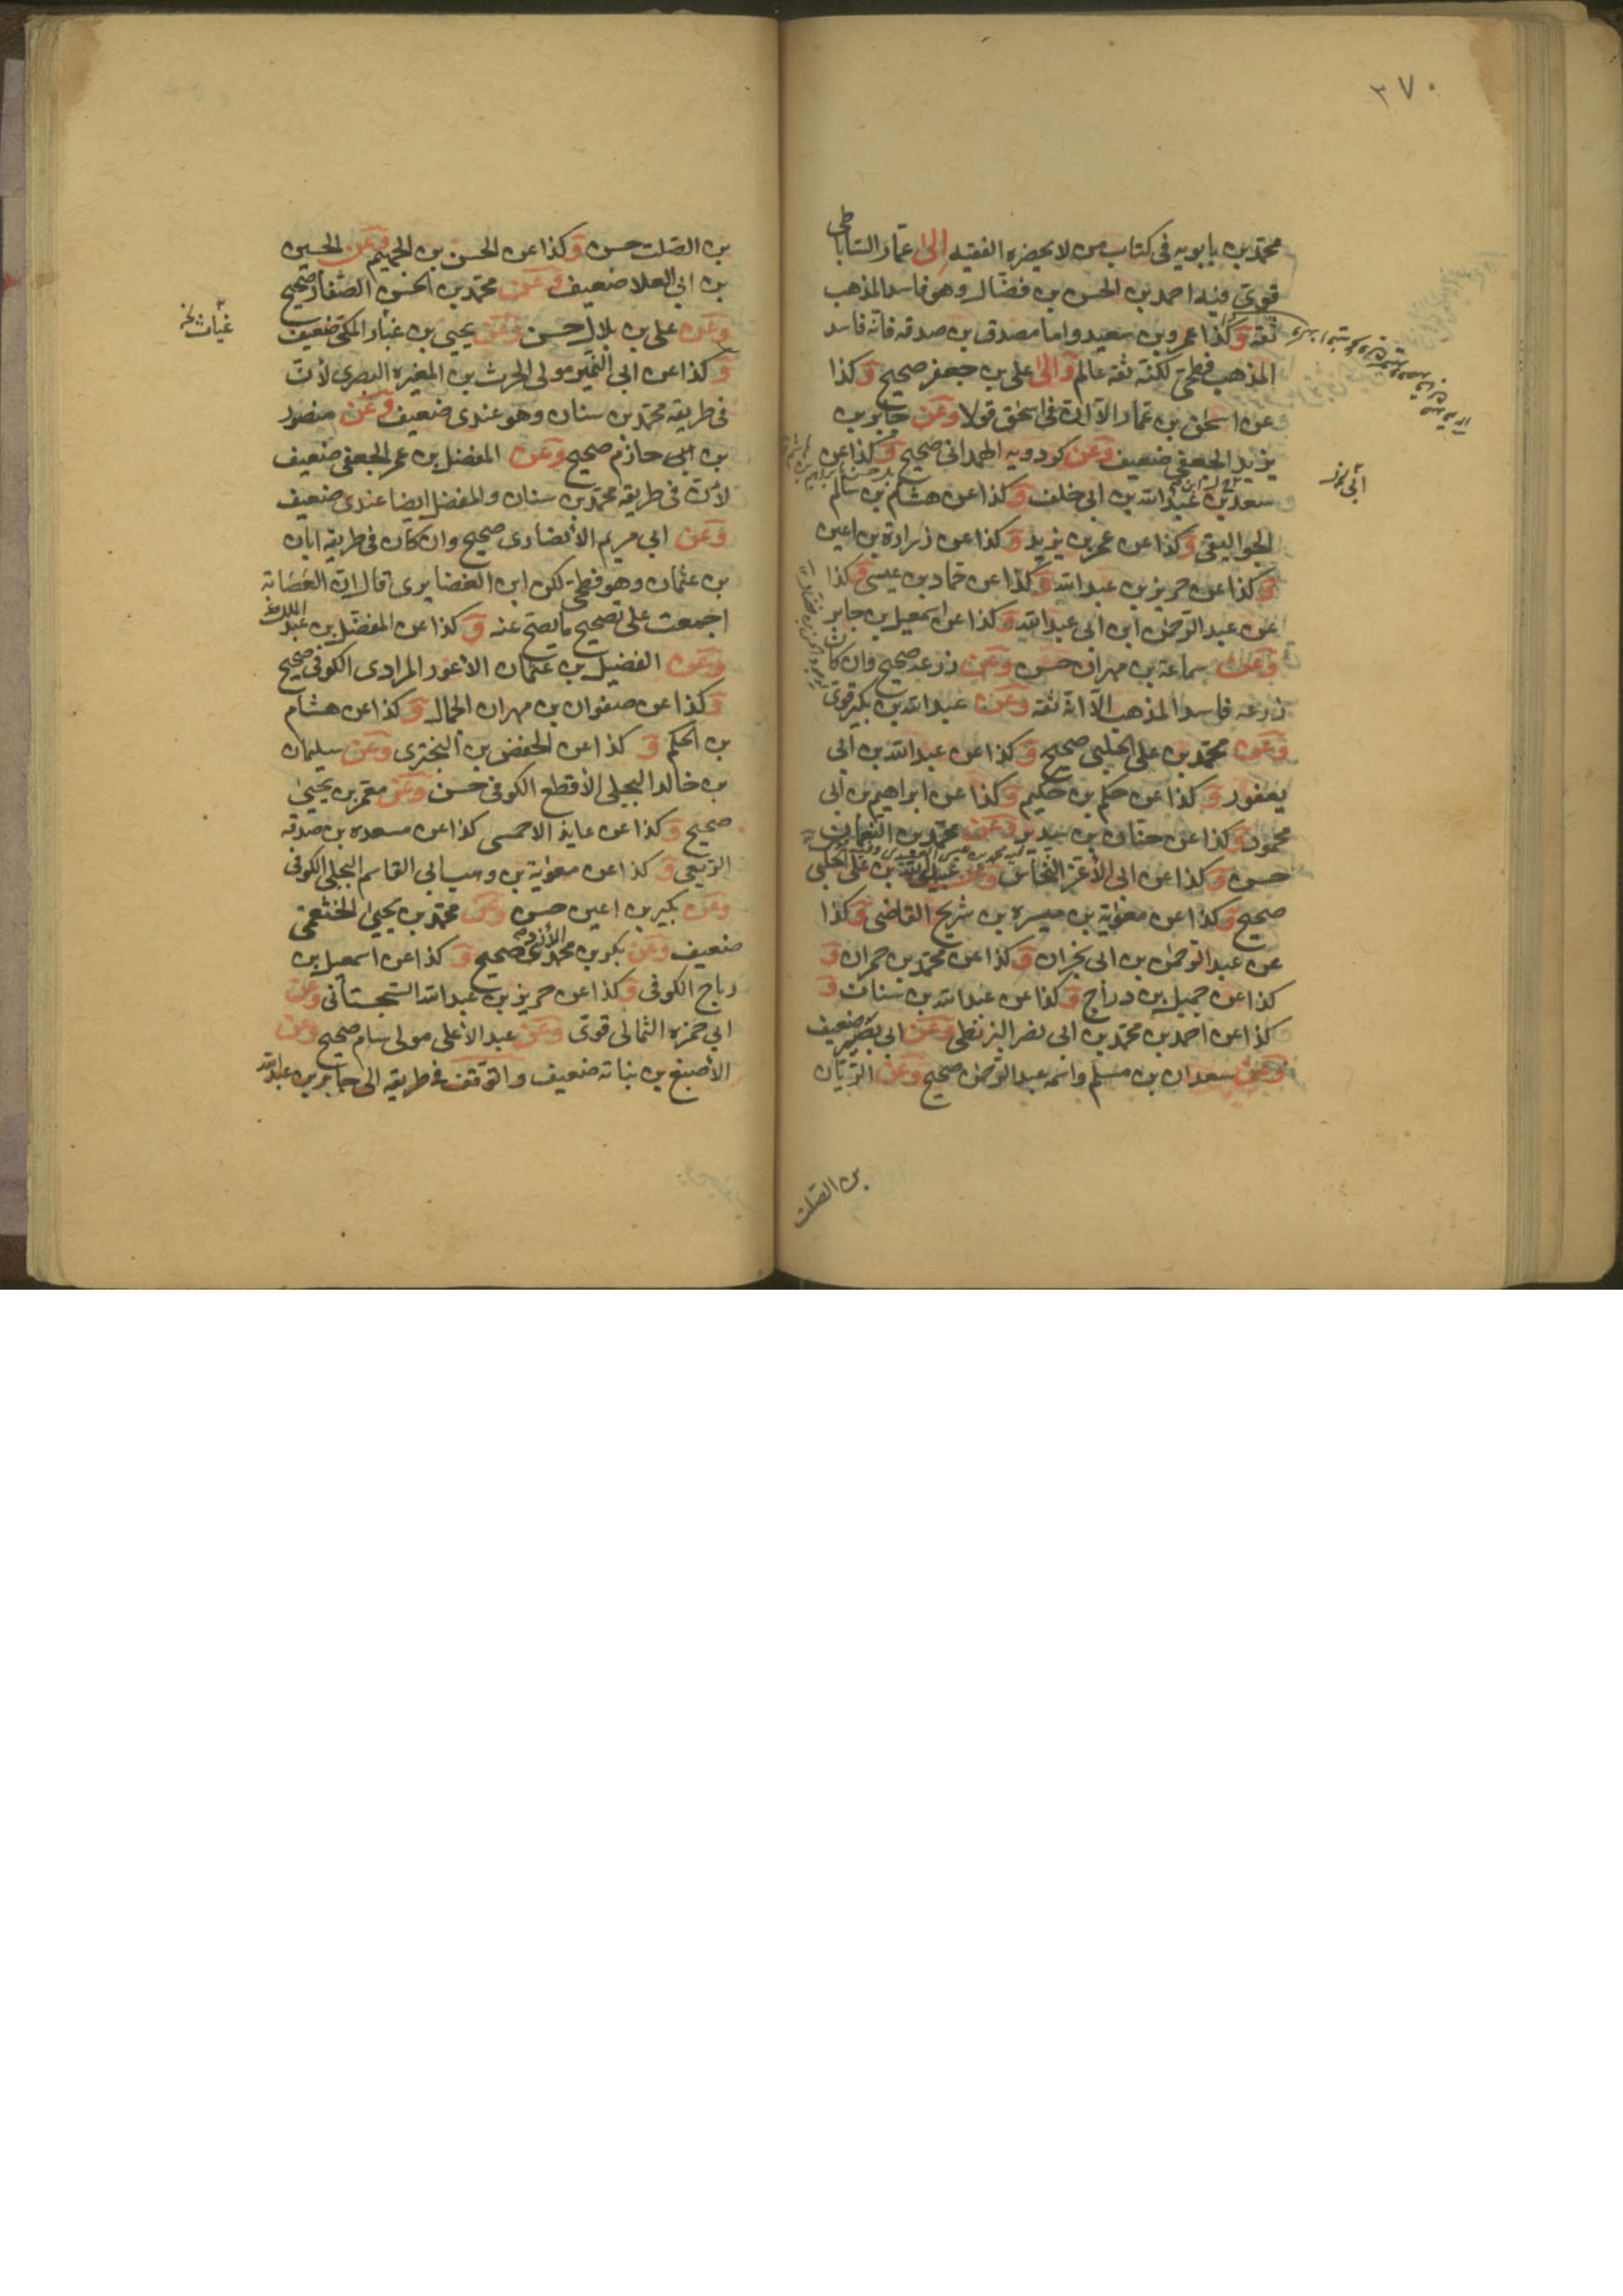 ٣٧٠
محمد بن بابويه فى كتاب من لا يحضره الفقيه الى عمار الساباطى
قوى فيه احمد بن الحسن بن فضال وهو فاسد المذهب
ثقة وكذا عمرو بن سعيد واما مصدق بن صدقه فانه فاسد
المذهب فطحى لكنه ثقه عالم والى على بن جعفر صحيح وكذا
عن اسحق بن عمار الا ان فى اسحق قولا وعن جابر بن
يزيد الجعفى ضعيف وعن كردويه الهمدانى صحيح وكذا عن
سعد بن عبد الله بن ابى خلف وكذا عن هشام بن سالم
الجواليقى وكذا عن عمر بن يزيد وكذا عن زرارة بن اعين
وكذا عن حريز بن عبد الله وكذا عن حماد بن عيسى وكذا
عن عبد الرحمن ابن ابى عبد الله وكذا عن اسمعيل بن جابر
وعن سماعة بن مهران حسن وعن زرعه صحيح وان كان
زرعه فاسد المذهب الا انه ثقه وعن عبد الله بن بكير قوى
وعن محمد بن على الحلبى صحيح وكذا عن عبد الله بن ابى
يعفور وكذا عن حكم بن حكيم وكذا عن ابراهيم بن ابى
محمود وكذا عن حنان بن سدير وعن محمد بن النعمان
حسن وكذا عن ابى الأعز النخاس وعن عبيد الله بن على الحلبى
صحيح وكذا عن معوية بن ميسره بن شريح القاضى وكذا
عن عبد الرحمن بن ابى نجران وكذا عن محمد بن حمران و
كذا عن جميل بن دراج وكذا عن عبد الله بن سنان و
كذا عن احمد بن محمد بن ابى نصر البزنطى وعن ابى بصير ضعيف
وعن سعدان بن مسلم واسمه عبد الرحمن صحيح وعن الريان
بن الصلت
بن الصلت حسن وكذا عن الحسن بن الجهيم وعن الحسين
بن ابى العلا ضعيف وعن محمد بن الحسن الصفار صحيح
وعن على بن بلال حسن وعن يحيى بن عباد المكى ضعيف
غياث خ
وكذا عن ابى النمير مولى الحرث بن المغيره البصرى لأن
فى طريقه محمد بن سنان وهو عندى ضعيف وعن منصور
بن ابى حازم صحيح وعن المفضل بن عمر الجعفى ضعيف
لأن فى طريقه محمد بن سنان والمفضل ايضا عندى ضعيف
وعن ابى مريم الأنصارى صحيح وان كان فى طريقه ابان
بن عثمان وهو فطحى لكن ابن الغضايرى قال ان العصابة
اجمعت على تصحيح ما يصح عنه وكذا عن المفضل بن عبد الملك
وعن الفضيل بن عثمان الأعور المرادى الكوفى صحيح
وكذا عن صفوان بن مهران الجمال وكذا عن هشام
بن الحكم و كذا عن الحفص بن البخترى وعن سليمان
بن خالد البجلى الأقطع الكوفى حسن وعن معمر بن يحيى
صحيح وكذا عن عايذ الاحمسى كذا عن مسعدة بن صدقه
الربعى و كذا عن معوية بن وهب ابى القاسم البجلى الكوفى
وعن بكير بن اعين حسن وعن محمد بن يحيى الخثعمى
ضعيف وعن بكر بن محمد الأزدى صحيح و كذا عن اسمعيل بن
رباح الكوفى وكذا عن حريز بن عبد الله السجستانى وعن
ابى حمزه الثمالى قوى وعن عبد الأعلى مولى سام صحيح وعن
الأصبغ بن نباته ضعيف والتوقف فى طريقه الى جابر بن عبد الله